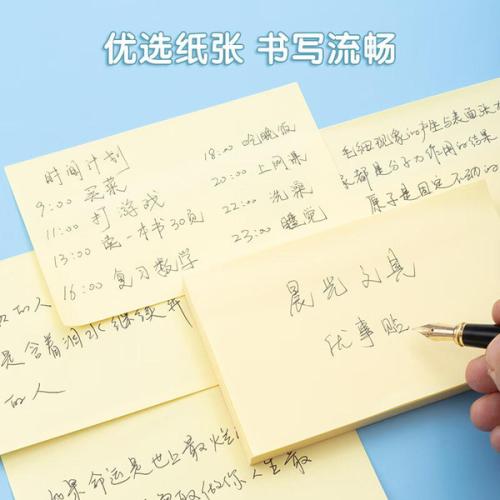 优选纸张 书写流畅
时间计划
9:00 买菜
11:00 打游戏
13:00 读一本书30页
16:00 复习数学
18:00 吃晚饭
20:00 上网课
22:00 洗澡
23:00 睡觉
毛细现象的产生与表面张
都是分子力作用的结果
原子是固定不动的
的人
是含着泪水继续奔
的人
晨光文具
优事贴
如果命运是世上最烂
你人生最